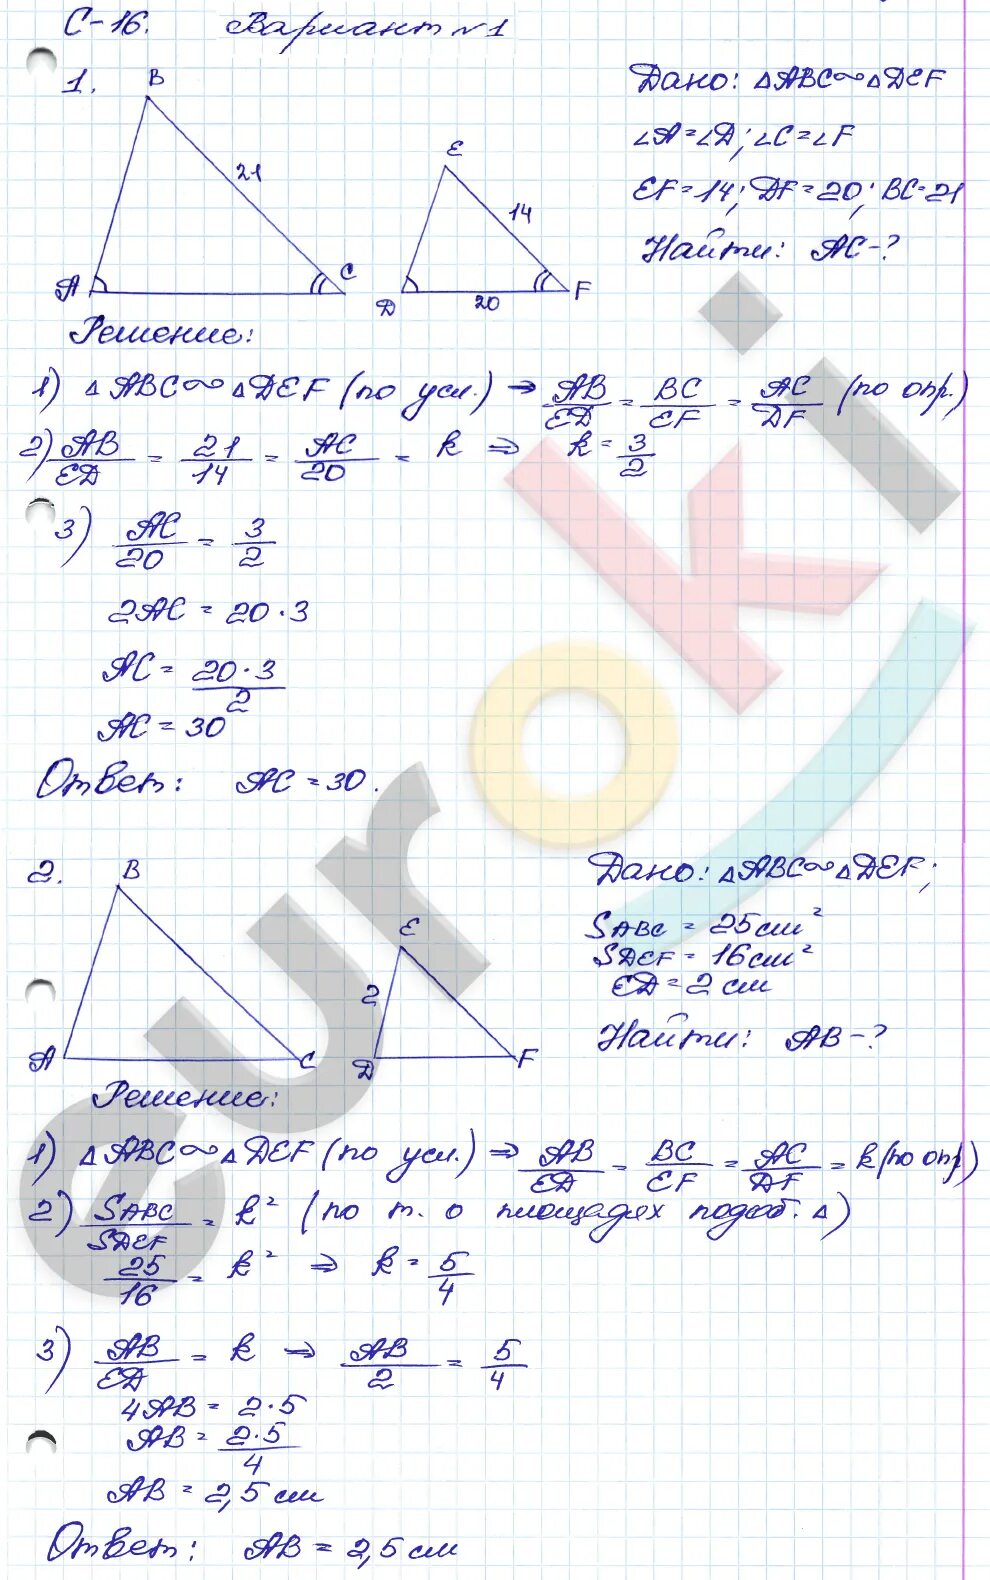 С-16. Вариант №1
1.
B
21
A
C
E
14
D
20
F
Дано: △ABC∾△DEF
∠A=∠D; ∠C=∠F
EF=14; DF=20; BC=21
Найти: AC-?
Решение:
1) △ABC∾△DEF (по усл.) ⇒ AB/ED = BC/EF = AC/DF (по опр.)
2) AB/ED = 21/14 = AC/20 = k ⇒ k = 3/2
3) AC/20 = 3/2
2AC = 20·3
AC = 20·3/2
AC = 30
Ответ: AC = 30.
2.
B
A
C
E
2
D
F
Дано: △ABC∾△DEF;
SABC = 25 см²
SDEF = 16 см²
ED = 2 см
Найти: AB-?
Решение:
1) △ABC∾△DEF (по усл.) ⇒ AB/ED = BC/EF = AC/DF = k (по опр)
2) SABC/SDEF = k² (по т. о площадях подоб. △)
25/16 = k² ⇒ k = 5/4
3) AB/ED = k ⇒ AB/2 = 5/4
4AB = 2·5
AB = 2·5/4
AB = 2,5 см
Ответ: AB = 2,5 см
euroki